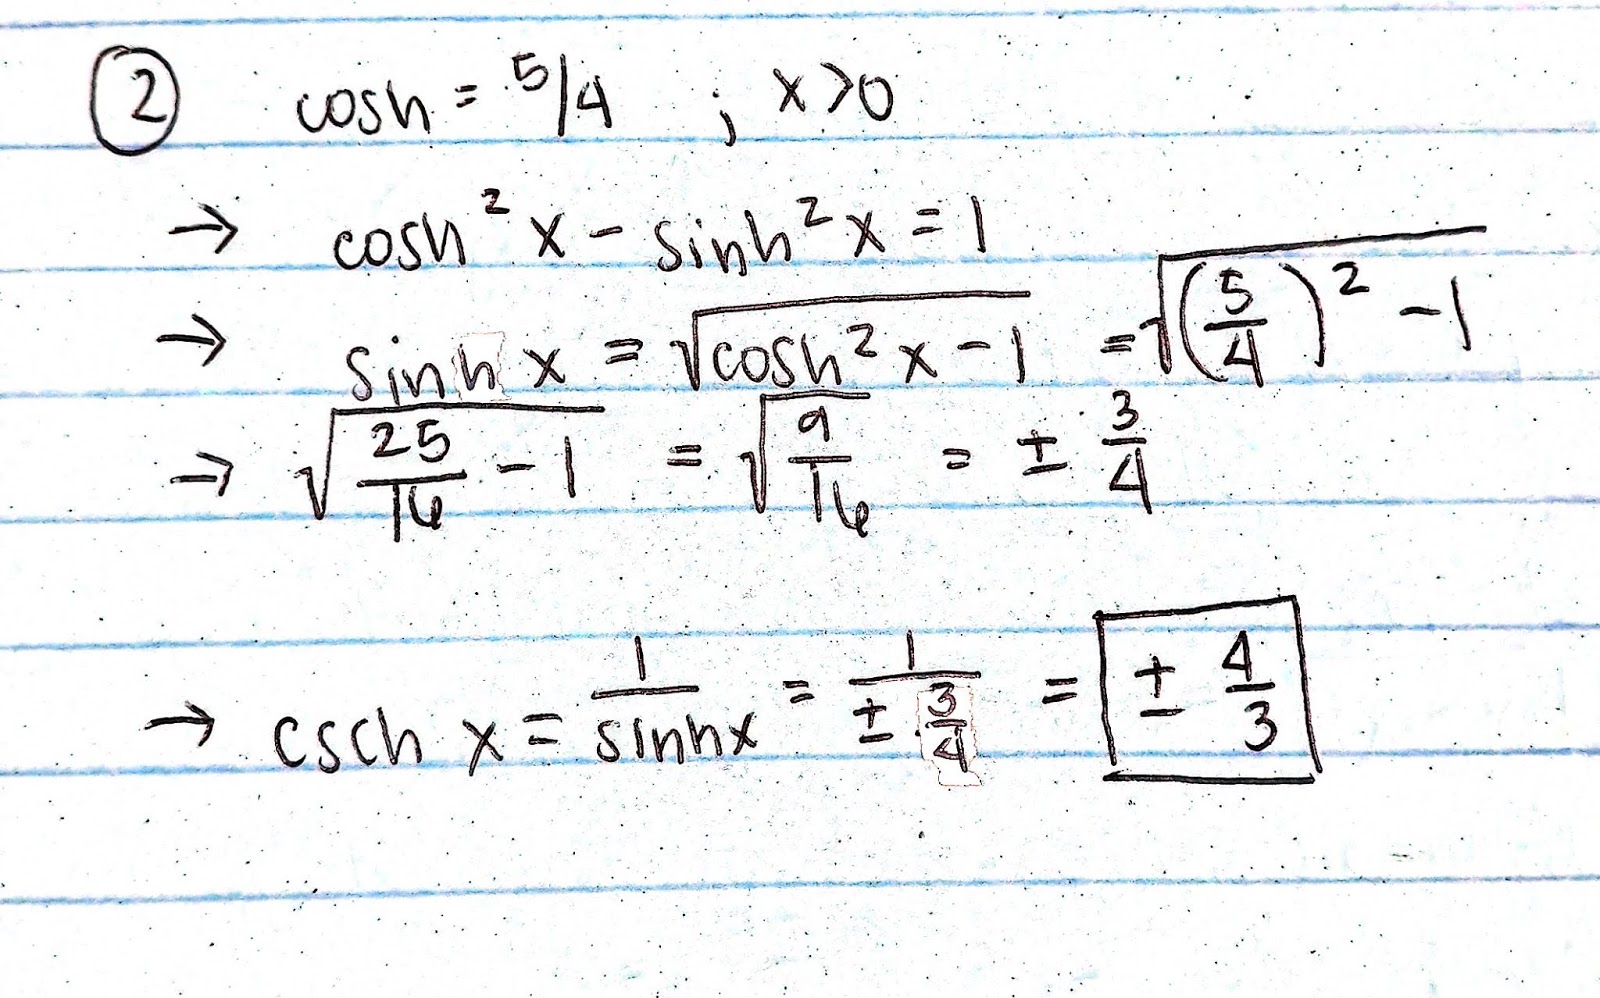 ② cosh = 5/4 ; x>0
→ cosh² x - sinh² x = 1
→ sinh x = √(cosh² x - 1) = √((5/4)² - 1)
→ √(25/16 - 1) = √(9/16) = ± 3/4
→ csch x = 1/sinhx = 1/(± 3/4) = ± 4/3